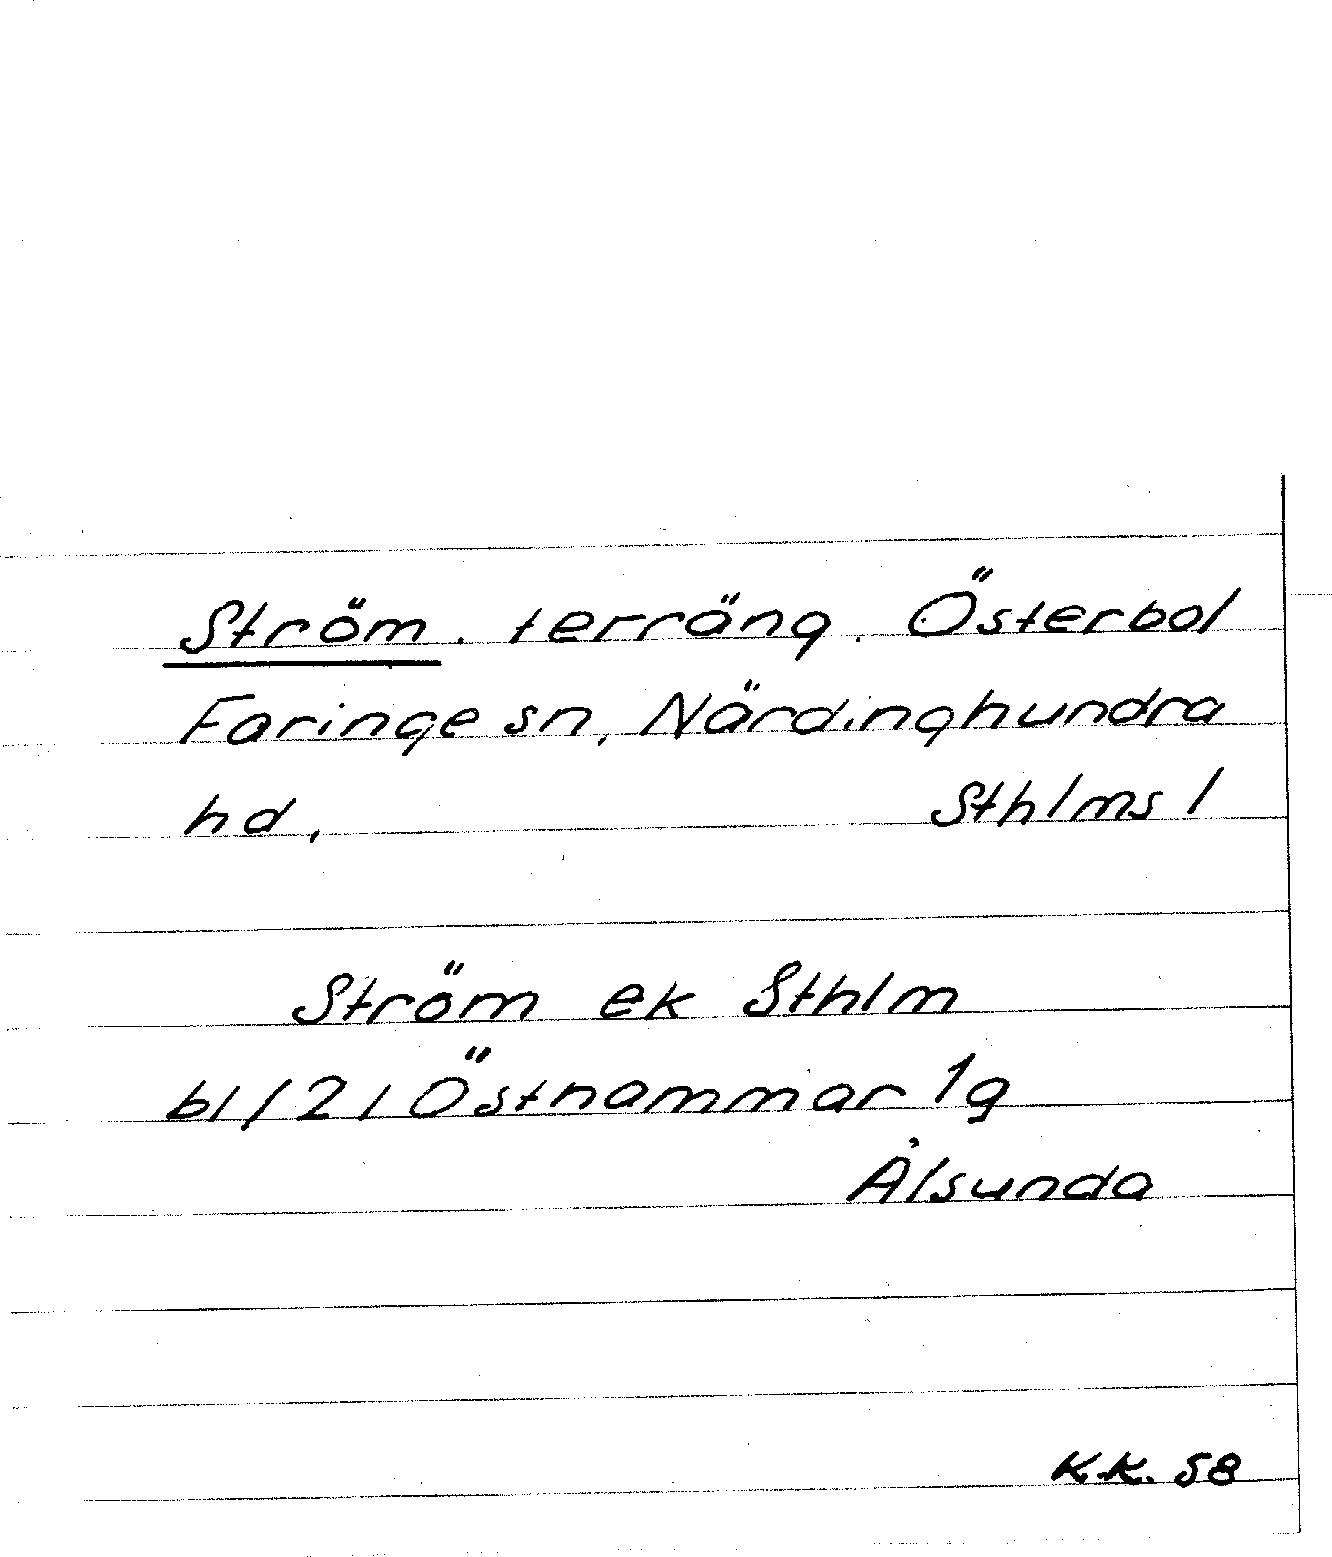 Ström. terräng. Österbol
Faringe sn, Närdinghundra
hd, Sthlms l
Ström ek Sthlm
bl/21 Östhammar 1g
Ålsunda
K.K. 58